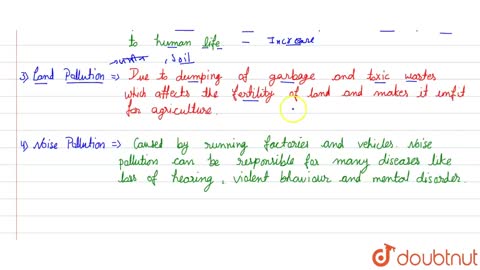 to human life - Increase
, soil
3) Land Pollution => Due to dumping of garbage and toxic wastes
which affects the fertility of land and makes it unfit
for agriculture.
4) Noise Pollution => Caused by running factories and vehicles. Noise
pollution can be responsible for many diseases like
loss of hearing, violent bhaviour and mental disorder.
doubtnut